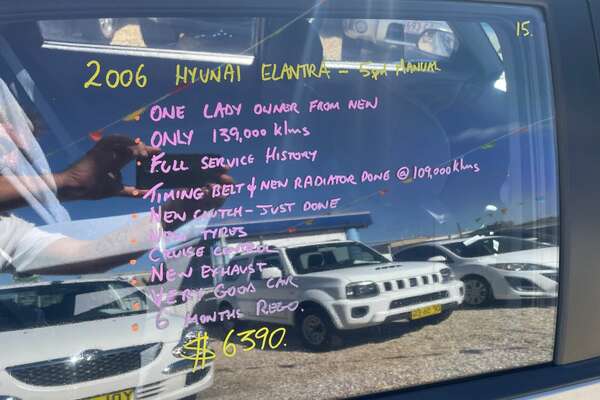 15.
2006 HYUNAI ELANTRA - 5spd MANUAL
• ONE LADY OWNER FROM NEW
• ONLY 139,000 klms
• FULL SERVICE HISTORY
• TIMING BELT & NEW RADIATOR DONE @ 109,000 klms
• NEW CLUTCH - JUST DONE
• NEW TYRES
• CRUISE CONTROL
• NEW EXHAUST
• VERY GOOD CAR
• 6 MONTHS REGO
$6390.